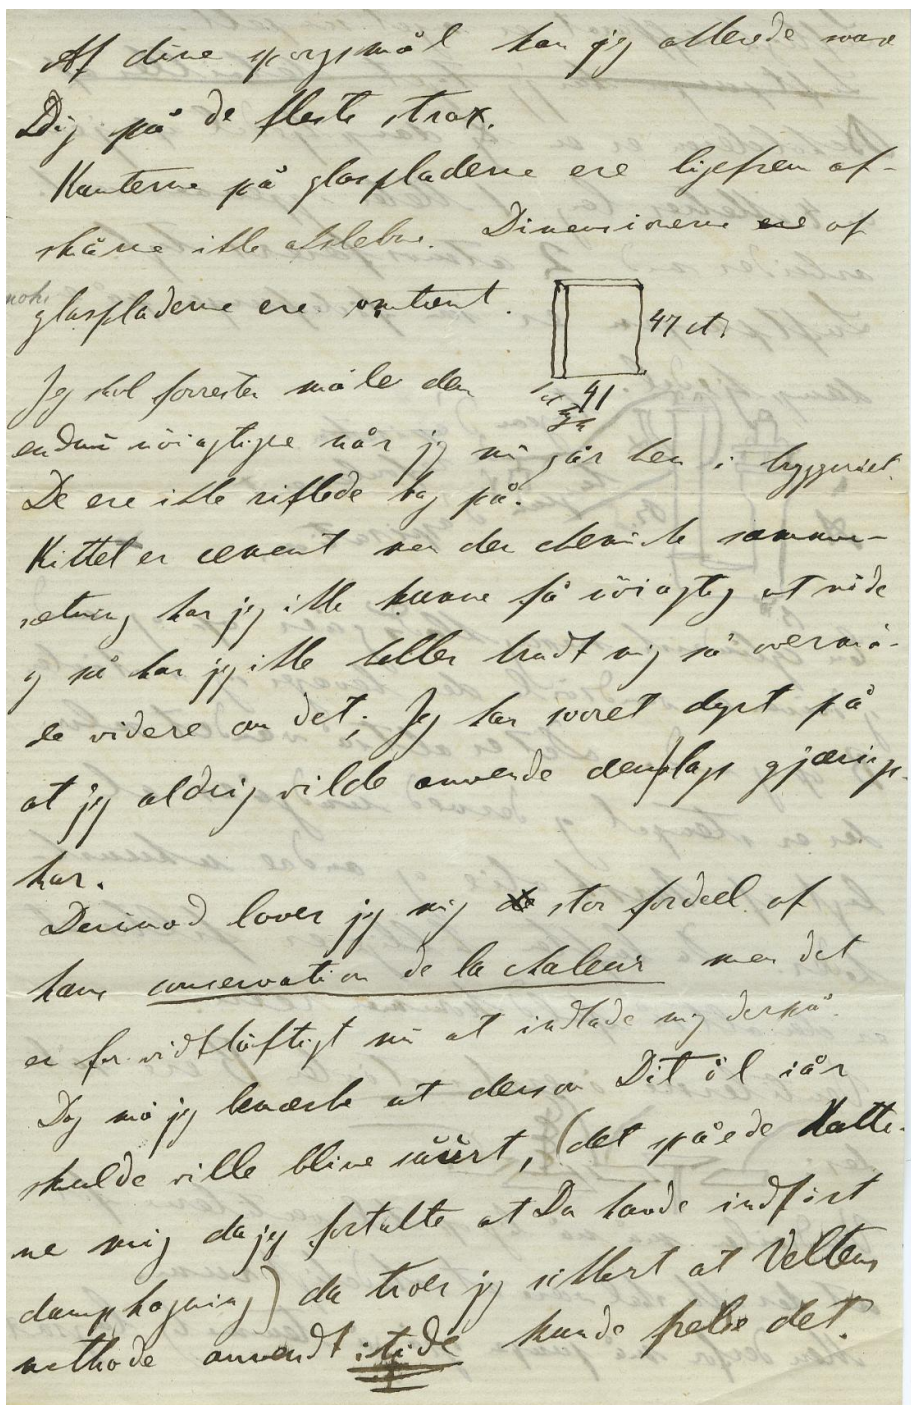 Af dine spørgsmål kan jeg allerede svare
Dig på de fleste strax.
Kanterne på glaspladerne ere ligefrem af-
skårne ikke afslebne. Dimensionerne ere af
glaspladerne ere omtrent.
47 ct.
41
Jeg skal forresten måle dem
endnu nöiagtigere når jeg nu går hen i bryggeriet.
De ere ikke riflede bag på.
Kittet er cement men den chemiske sammen-
sætning har jeg ikke kunne få nöiagtig at vide
og nu har jeg ikke heller brudt mig så overmå-
de videre om det; Jeg har svoret dyrt på
at jeg aldrig vilde anvende den slags gjærings-
kar.
Derimod lover jeg mig stor fordeel af
hans conservation de la chaleur men det
er for vidtlöftigt nu at indlade mig derpå.
Dog må jeg bemærke at dersom Dit öl iår
skulde ville blive suurt, (det spåede Katte-
ne mig da jeg fortalte at Du havde indfört
dampkogning) da troer jeg sikkert at Veltens
methode anvendt itide kunde frelse det.